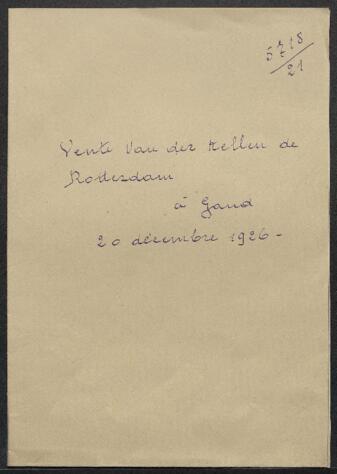 5718
/21
Vente Van der Kellen de
Rotterdam
à Gand
20 décembre 1926 -